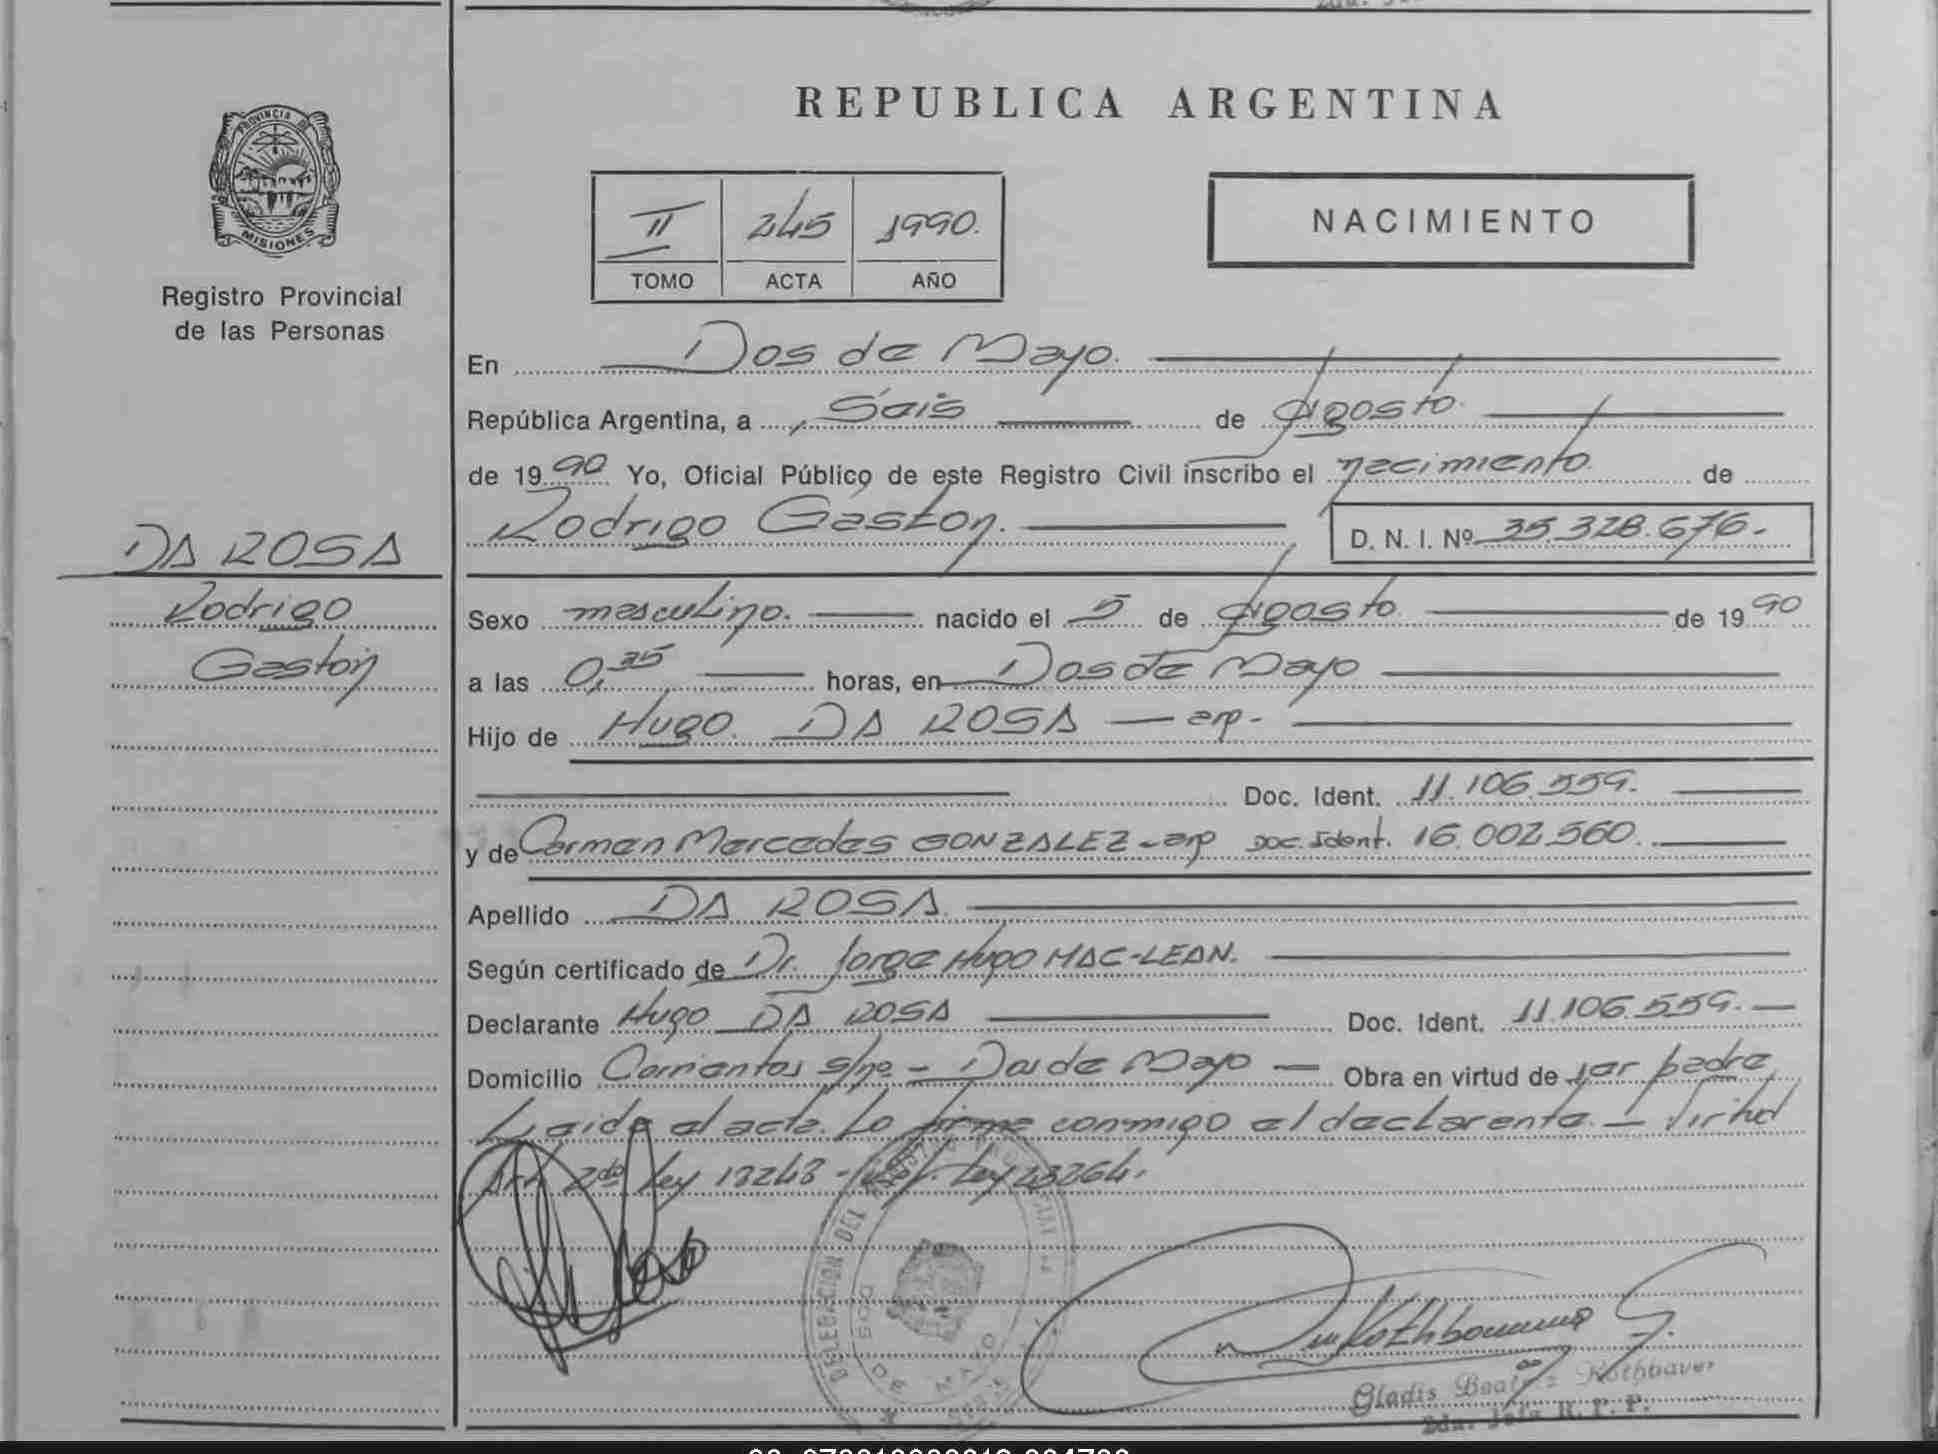 REPUBLICA ARGENTINA
PROVINCIA DE
MISIONES
Registro Provincial
de las Personas
II 245 1990.
TOMO ACTA AÑO
NACIMIENTO
En Dos de Mayo.
República Argentina, a Seis de Agosto.
de 1990 Yo, Oficial Público de este Registro Civil inscribo el nacimiento de
Rodrigo Gastón. D. N. I. Nº 35.328.676.-
DA ROSA
Rodrigo
Gastón
Sexo masculino. nacido el 5 de Agosto de 1990
a las 0,35 horas, en Dos de Mayo
Hijo de Hugo DA ROSA — arp-
Doc. Ident. 11.106.559.
y de Carmen Mercedes GONZALEZ - arp Doc. Ident. 16.002.560.
Apellido DA ROSA
Según certificado de Dr. Jorge Hugo MAC-LEAN.
Declarante Hugo DA ROSA Doc. Ident. 11.106.559.-
Domicilio Corrientes s/nº. - Dos de Mayo — Obra en virtud de ser padre
Leida el acta. Lo firma conmigo el declarante. — Virtud
Art. 2do Ley 18248 - Ley 23264.
DELEGACION DEL REGISTRO PROVINCIAL
DOS DE MAYO
Gladis Beatriz Rothbauer
Jefa R. P. P.